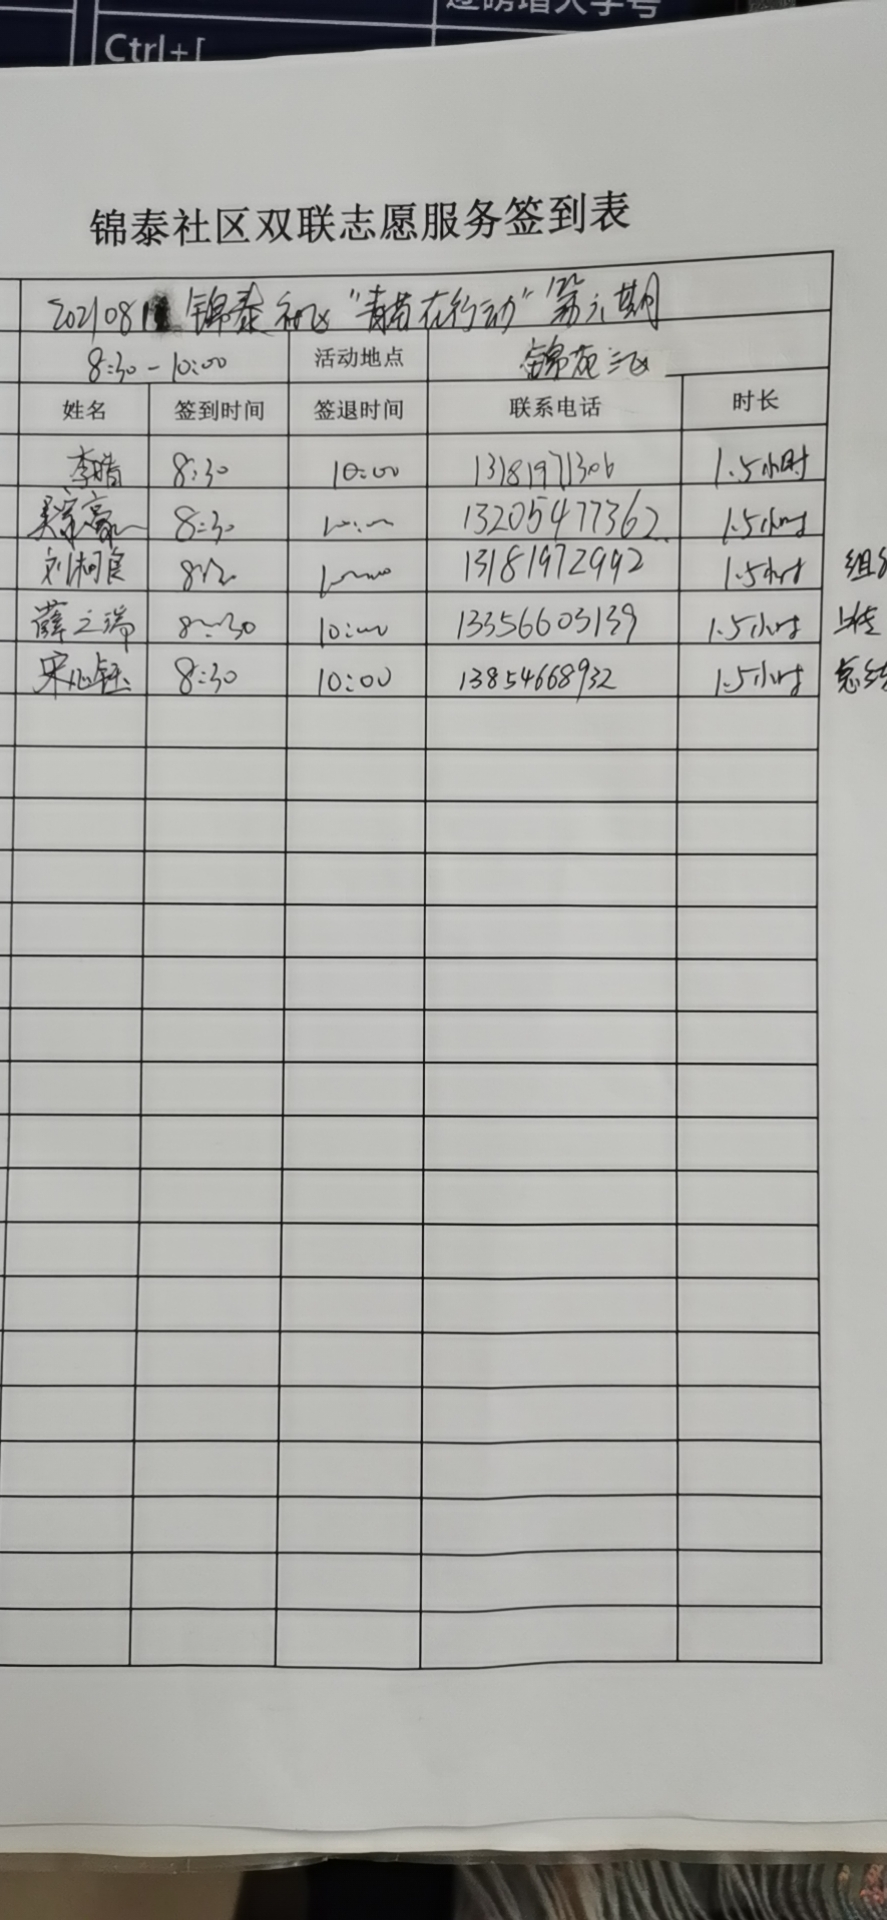 Ctrl+[
锦泰社区双联志愿服务签到表
202108 锦泰社区"青苗在行动"第六期
8:30-10:00 活动地点 锦苑三区
姓名 签到时间 签退时间 联系电话 时长
李晴 8:30 10:00 13181971306 1.5小时
吴宗豪 8:30 10:00 13205477362 1.5小时
刘柯良 8:30 10:00 13181972992 1.5小时
薛之瑞 8:30 10:00 13356603139 1.5小时 上传
宋 钰 8:30 10:00 13854668932 1.5小时